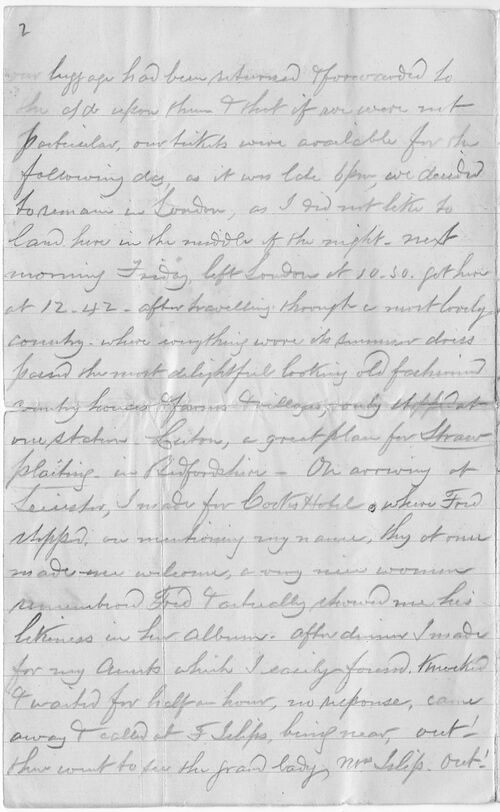 2
our luggage had been returned & forwarded to
the add upon them & that if we were not
particular, our tickets were available for the
following day, as it was late 6pm, we decided
to remain in London, as I did not like to
land here in the middle of the night - next
morning Friday, left London at 10-30. got here
at 12-42 - after travelling through a most lovely
country - where everything wore its summer dress
passed the most delightful looking old fashioned
country houses & farms & villages, only stopped at
one station Luton, a great place for Straw
plaiting - in Bedfordshire - On arriving at
Leicester, I made for Cooks Hotel, where Fred
stopped, on mentioning my name, they at once
made me welcome, a very nice woman
remembered Fred & actually showed me his
likeness in her album - after dinner I made
for my Aunts which I easily found. Knocked
& waited for half an hour, no response, came
away & called at F Islips, being near, out!
then went to see the grand lady, Mrs Islip. Out!